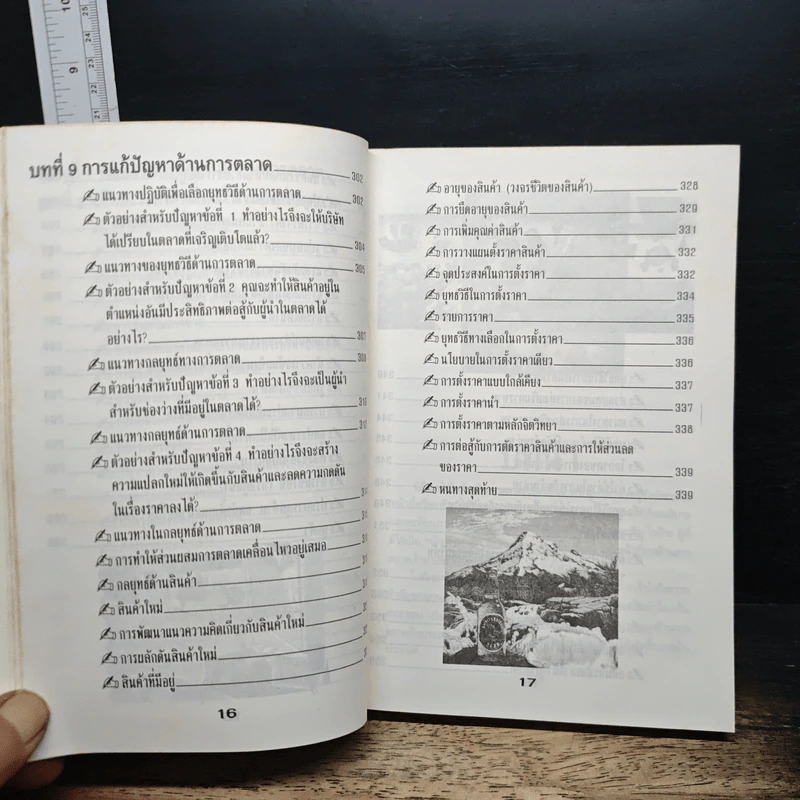 บทที่ 9 การแก้ปัญหาด้านการตลาด 302
แนวทางปฏิบัติเพื่อเลือกยุทธวิธีด้านการตลาด 302
ตัวอย่างสำหรับปัญหาข้อที่ 1 ทำอย่างไรจึงจะให้บริษัท
ได้เปรียบในตลาดที่เจริญเติบโตแล้ว? 304
แนวทางของยุทธวิธีด้านการตลาด 305
ตัวอย่างสำหรับปัญหาข้อที่ 2 คุณจะทำให้สินค้าอยู่ใน
ตำแหน่งอันมีประสิทธิภาพต่อสู้กับผู้นำในตลาดได้
อย่างไร? 307
แนวทางกลยุทธ์ทางการตลาด 308
ตัวอย่างสำหรับปัญหาข้อที่ 3 ทำอย่างไรจึงจะเป็นผู้นำ
สำหรับช่องว่างที่มีอยู่ในตลาดได้? 310
แนวทางกลยุทธ์ด้านการตลาด
ตัวอย่างสำหรับปัญหาข้อที่ 4 ทำอย่างไรจึงจะสร้าง
ความแปลกใหม่ให้เกิดขึ้นกับสินค้าและลดความกดดัน
ในเรื่องราคาลงได้?
แนวทางในกลยุทธ์ด้านการตลาด
การทำให้ส่วนผสมการตลาดเคลื่อนไหวอยู่เสมอ
กลยุทธ์ด้านสินค้า
สินค้าใหม่
การพัฒนาแนวความคิดเกี่ยวกับสินค้าใหม่
การผลักดันสินค้าใหม่
สินค้าที่มีอยู่
16
อายุของสินค้า (วงจรชีวิตของสินค้า) 328
การยืดอายุของสินค้า 329
การเพิ่มคุณค่าสินค้า 331
การวางแผนตั้งราคาสินค้า 332
จุดประสงค์ในการตั้งราคา 332
ยุทธวิธีในการตั้งราคา 334
รายการราคา 335
ยุทธวิธีทางเลือกในการตั้งราคา 336
นโยบายในการตั้งราคาเดียว 336
การตั้งราคาแบบใกล้เคียง 337
การตั้งราคานำ 337
การตั้งราคาตามหลักจิตวิทยา 338
การต่อสู้กับการตัดราคาสินค้าและการให้ส่วนลด
ของราคา 339
หนทางสุดท้าย 339
17